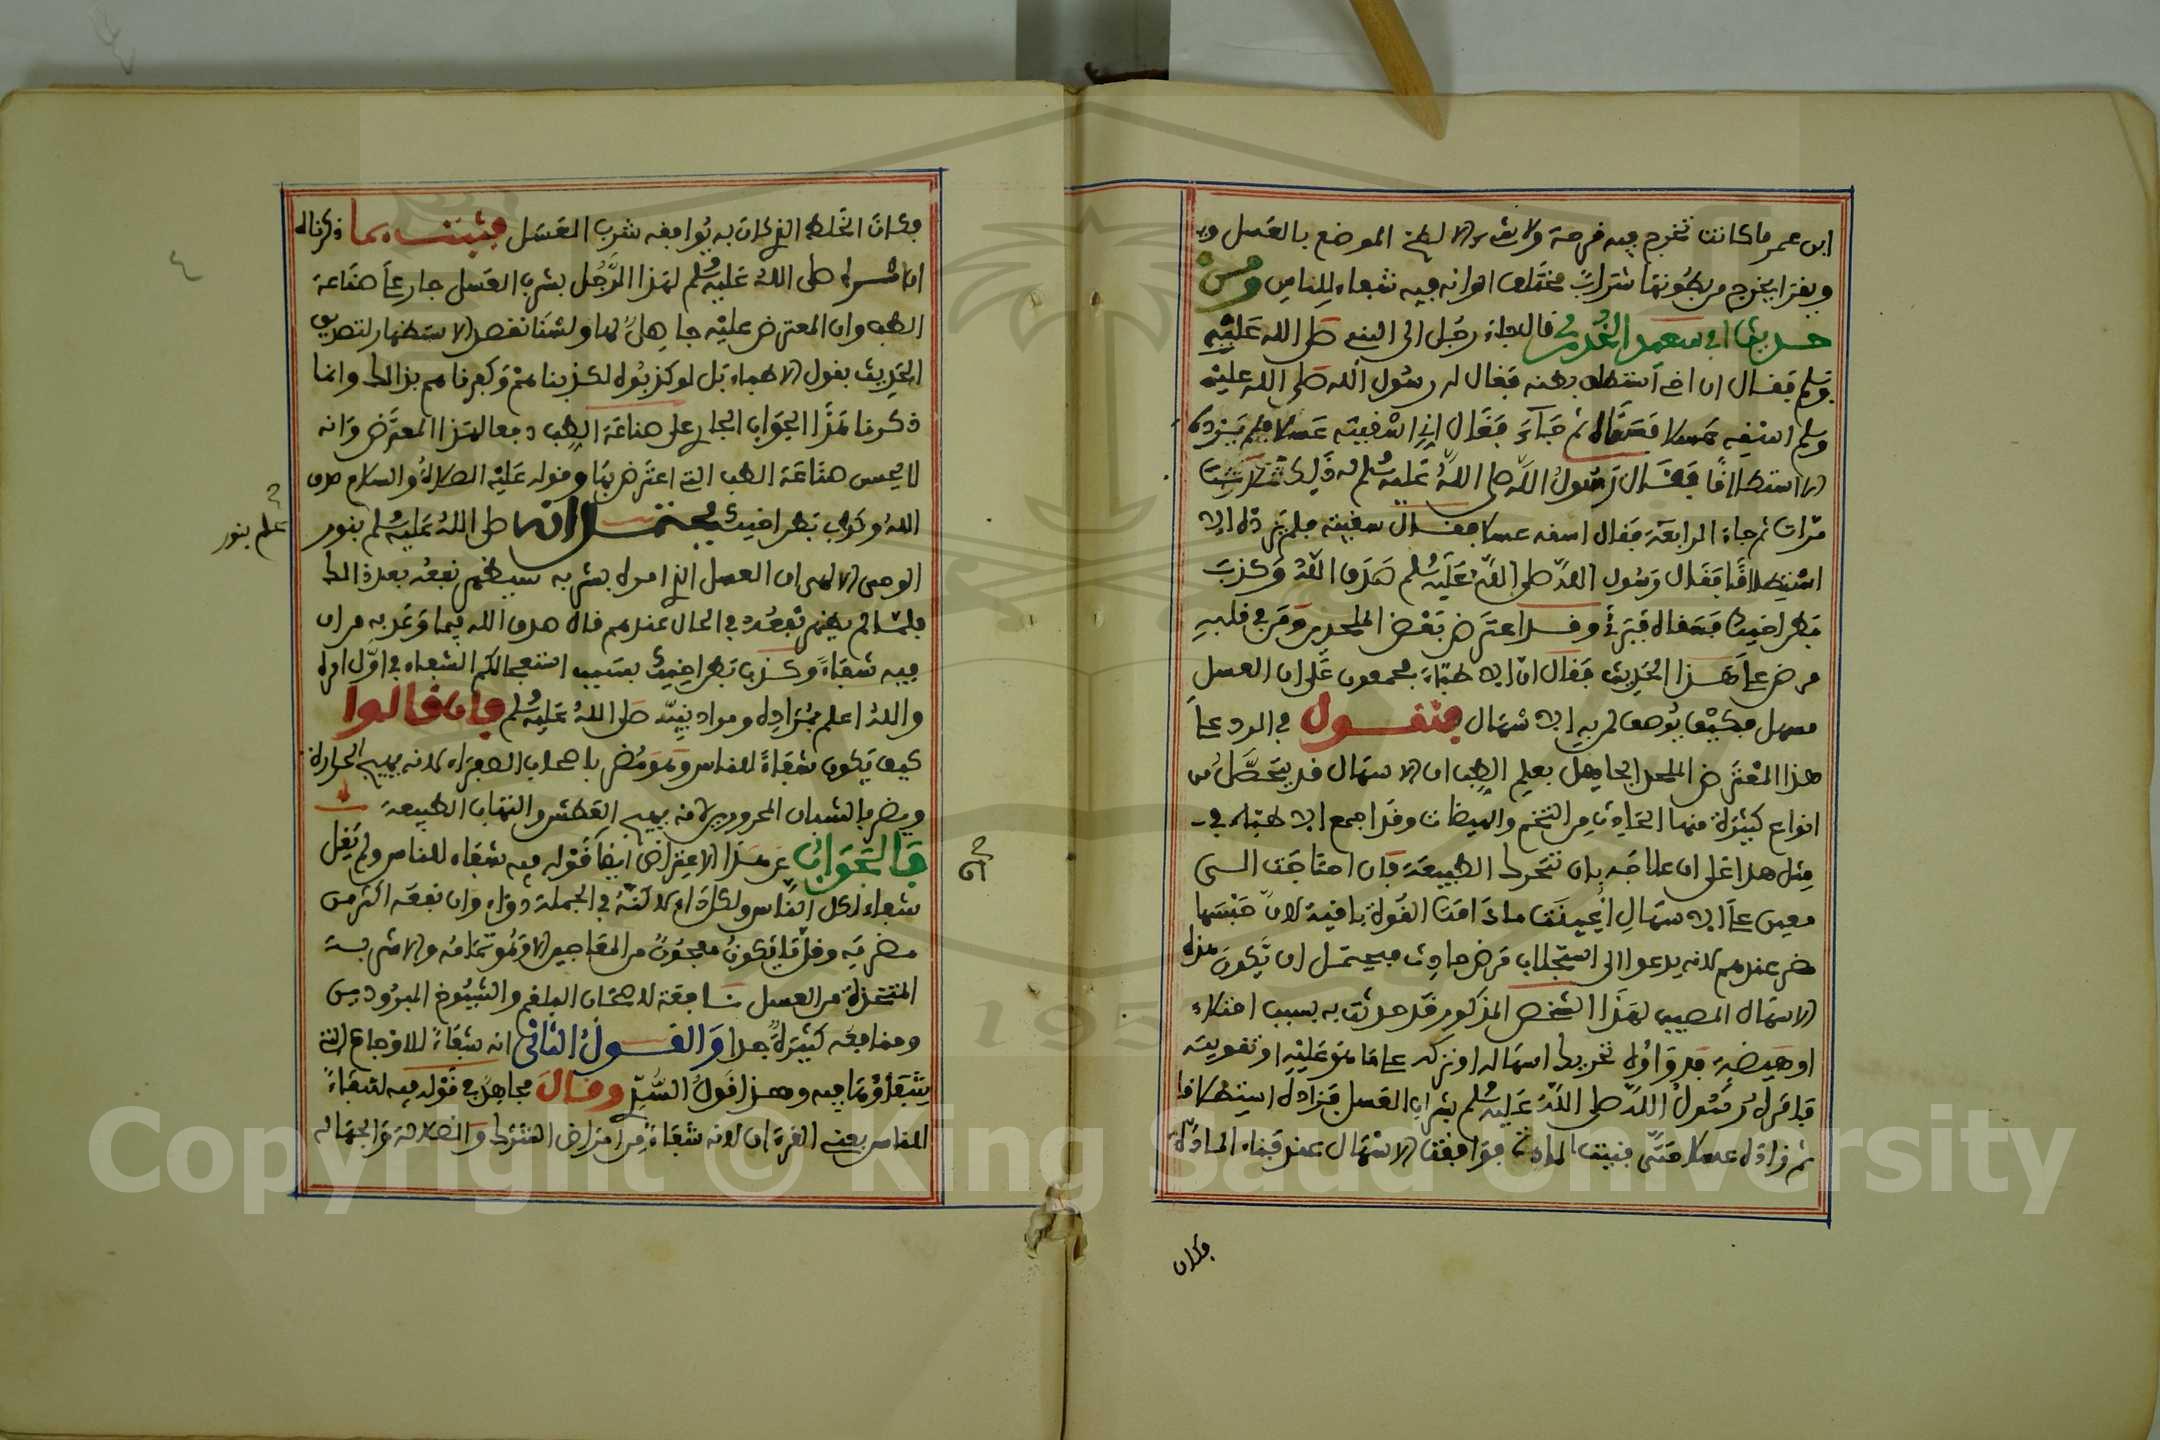 ابن عمر ما كانت تخرج فيه قرحة ولا شيء الا لطخ الموضع بالعسل
ويقرا يخرج من بطونها شراب مختلف الوانه فيه شفاء للناس ومن
حديث ابي سعيد الخدري قال جاء رجل الى النبي صلى الله عليه
وسلم فقال ان اخي استطلق بطنه فقال له رسول الله صلى الله عليه
وسلم اسقيه عسلا فسقاه ثم جاء فقال اني اسقيته عسلا فلم يزده
الا استطلاقا فقال رسول الله صلى الله عليه وسلم له ذلك ثلاث
مرات ثم جاء الرابعة فقال اسقه عسلا فقال سقيته فلم يزده الا
استطلاقا فقال رسول الله صلى الله عليه وسلم صدق الله وكذب
بطن اخيك فسقاه فبرئ وقد اعترض بعض الملحدين ومن في قلبه
مرض على هذا الحديث فقال ان الاطباء مجمعون على ان العسل
مسهل فكيف يوصف لمن به الاسهال فنقول في الرد على
هذا المعترض الملحد الجاهل بعلم الطب ان الاسهال قد يتحصل من
انواع كثيرة منها الحادث من التخم والهيضات وقد اجمع الاطباء في
مثل هذا على ان علاجه بان تترك الطبيعة فان احتاجت الى
معين على الاسهال اعينت ما دامت القوة باقية لان حبسها
مضر عندهم لانه يدعوا الى استجلاب مرض حادث فيحتمل ان يكون هذا
الاسهال المصيب لهذا الشخص المذكور قد حدث به بسبب امتلاء
او هيضة فدواؤه تحريك اسهاله او تركه على ما هو عليه او تقويته
فامره رسول الله صلى الله عليه وسلم بشراب العسل فزاده استطلاقا
ثم زاده عسلا حتى فنيت المادة فوافقت الاسهال عند فناء المادة
فكان
فكان الخلط الذي كان به يوافقه شرب العسل فثبت بما ذكرناه
ان امره صلى الله عليه وسلم لهذا الرجل بشرب العسل جار على صناعة
الطب وان المعترض عليه جاهل لها ولسنا نقصد الاستظهار لتصديق
الحديث بقول الاطباء بل لو كذبوه لكذبناهم وكفرناهم بذالك وانما
ذكرنا هذا الجواب الجاري على صناعة الطب دفعا لهذا المعترض وانه
لا يحسن صناعة الطب التي اعترض بها وقوله عليه الصلاة والسلام صدق
الله وكذب بطن اخيك يحتمل انه صلى الله عليه وسلم بنور
علم بنور
الوحي الالهي ان العسل الذي امره بشربه سيظهر نفعه بعد ذالك
فلما لم يظهر نفعه في الحال عندهم قال صدق الله فيما وعد به من ان
فيه شفاء وكذب بطن اخيك بسبب استعجالكم الشفاء في اول امره
والله اعلم بمراده ومراد نبيه صلى الله عليه وسلم فان قالوا
كيف يكون شفاء للناس وهو مضر باصحاب الصفراء لانه يهيج الحرارة
ويضر بالشباب المحرورين لانه يهيج العطش والتهاب الطبيعة
فالجواب عن هذا الاعتراض ايضا قوله فيه شفاء للناس ولم يقل
ان
شفاء لكل الناس ولكل داء لاكنه في الجملة دواء وان نفعه اكثر من
مضرته وقل ما يكون معجون من المعاجين الا وهو تمامه والاشربة
المتخذة من العسل نافعة لاصحاب البلغم والشيوخ المبرودين
ومنافعه كثيرة جدا والقول الثاني انه شفاء للاوجاع التي
شفاؤها فيه وهذا قول السدي وقال مجاهد في قوله فيه شفاء
للناس يعني القرءان لانه شفاء من امراض الشرك والضلالة والجهالة
Copyright © King Saud University
195